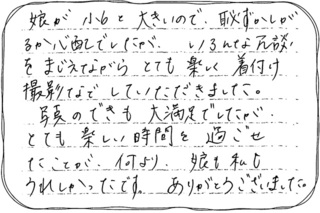 娘が小6と大きいので、恥ずかしが
るか心配でしたが、いろんな冗談
をまじえながらとても楽しく着付け
撮影などしていただきました。
写真のできも大満足でしたが、
とても楽しい時間を過ごせ
たことが、何より、娘も私も
うれしかったです。ありがとうございました。